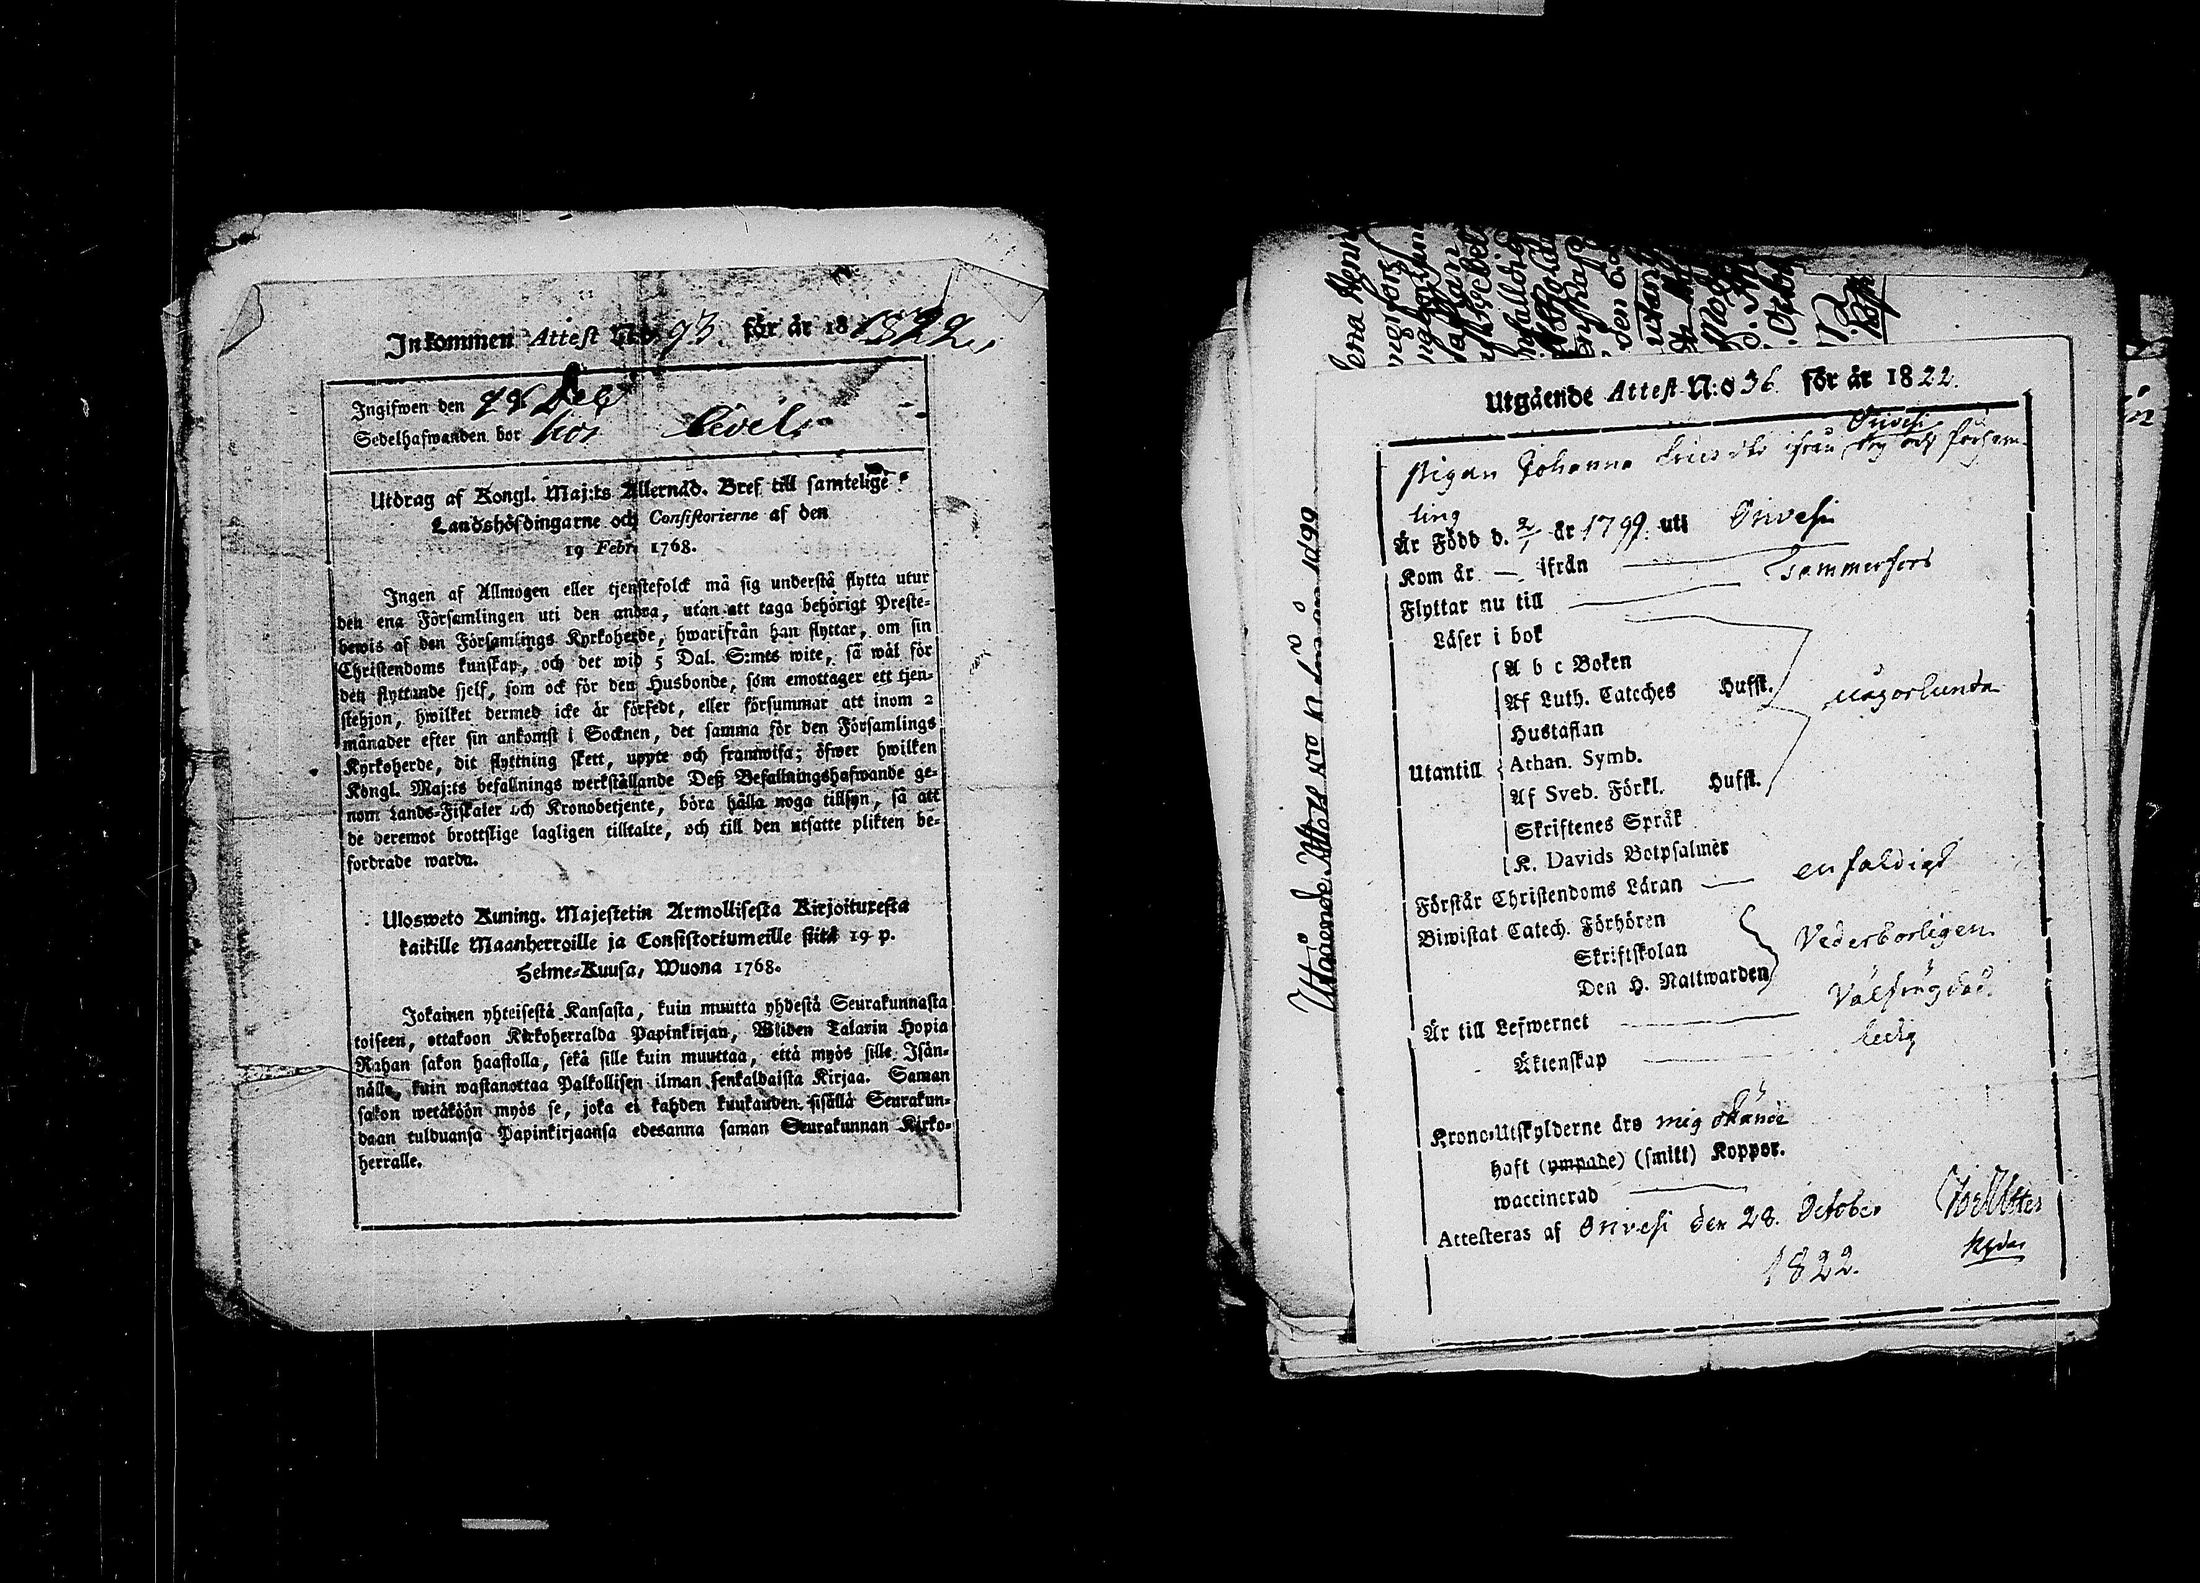 Inkommen Attest N:o 93. för år 18 1822
Ingifwen den 28 Dec
Sedelhafwanden bor hos
Utdrag af Kongl. Maj:ts Allernåd. Bref till samtelige
Landshöfdingarne och Consistorierne af den
19 Febr. 1768.
Ingen af Allmogen eller tjenstefolck må sig understå flytta utur
den ena Församlingen uti den andra, utan att taga behörigt Preste-
bewis af den Församlings Kyrkoherde, hwarifrån han flyttar, om sin
Christendoms kunskap, och det wid 5 Dal. S:mts wite, så wäl för
den flyttande sjelf, som ock för den Husbonde, som emottager ett tjen-
stehjon, hwilket dermed icke är försedt, eller försummar att inom 2
månader efter sin ankomst i Socknen, det samma för den Församlings
Kyrkoherde, dit flyttning skett, uppte och framwisa; öfwer hwilken
Kongl. Maj:ts befallnings werkställande Deß Befallningshafwande ge-
nom Lands-Fiskaler och Kronobetjente, böra hålla noga tillsyn, så att
de deremot brottslige lagligen tilltalte, och till den utsatte plikten be-
fordrade warda.
Ulosweto Kuning. Majestetin Armollisesta Kirjoituxesta
kaikille Maanherroille ja Consistoriumeille siitä 19 p.
Helme-Kuusa, Wuona 1768.
Jokainen yhteisestä Kansasta, kuin muutta yhdestä Seurakunnasta
toiseen, ottakoon Kirkoherralda Papinkirjan, Wliden Talarin Hopia
Rahan sakon haastolla, sekä sille kuin muuttaa, että myös sille Isän-
nälle, kuin wastanottaa Palkollisen ilman senkaldaista Kirjaa. Saman
sakon wetäköön myös se, joka ei kahden kuukauden sisällä Seurakun-
daan tulduansa Papinkirjaansa edesanna saman Seurakunnan Kirko-
herralle.
Utgående Attest N:o 36. för år 1822.
Orivesi
Pigan Johanna Ericsdr ifrån by och försam⸗
ling
Är Född d. 2/1 år 1799. uti Orivesi
Kom år — ifrån
Flyttar nu till Tammerfors
Läser i bok
Utantill
A b c Boken
Af Luth. Cateches Hufst.
någorlunda
Hustaflan
Athan. Symb.
Af Sveb. Förkl. Hufst.
Skriftenes Språk
K. Davids Botpsalmer
Förstår Christendoms Läran enfaldigt
Biwistat Catech. Förhören
Skriftskolan
Vederbörligen
Den H. Nattwarden
Är till Lefwernet Välfrägdad
Äktenskap ledig
Krono-Utskylderne äro mig okände
haft (ympade) (smitt) Koppor.
waccinerad
Attesteras af Orivesi den 28. October
1822.